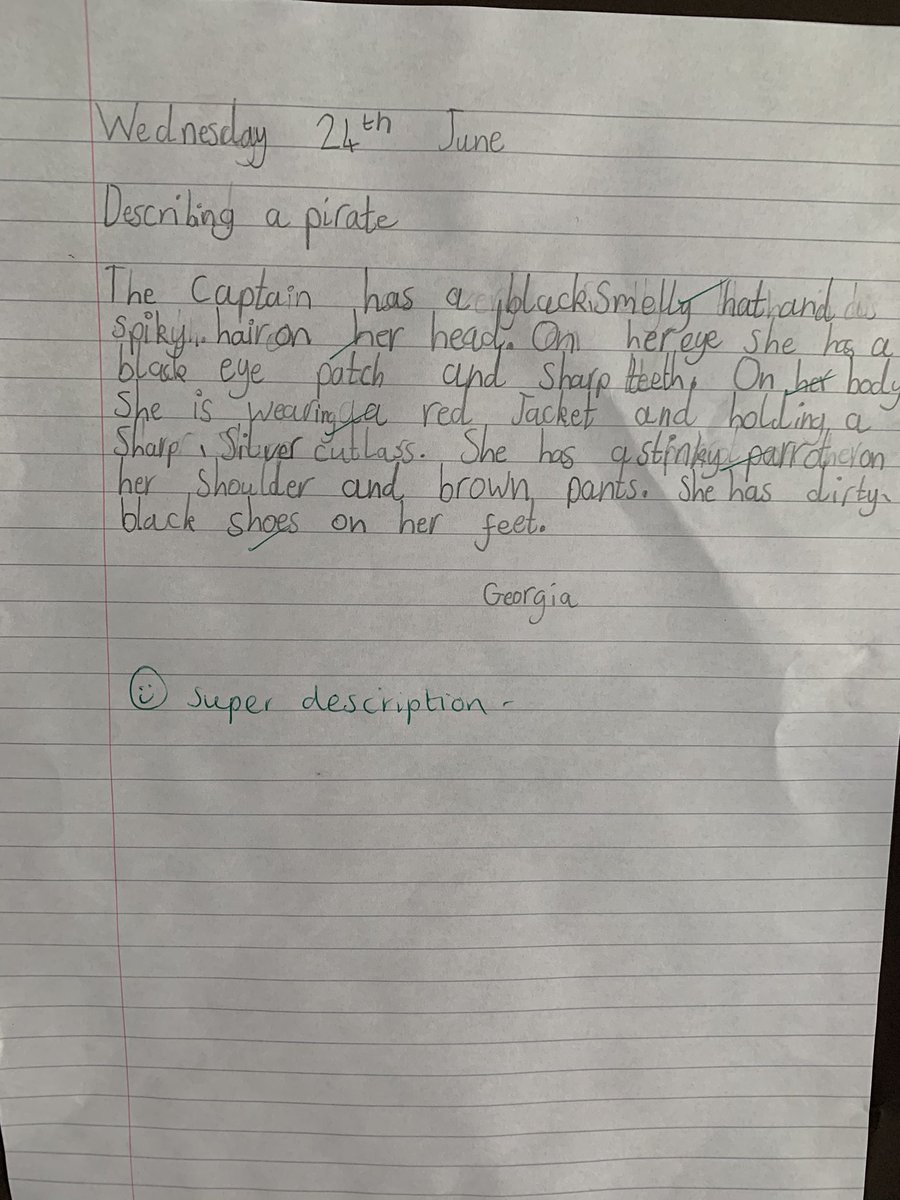 Wednesday 24th June
Describing a pirate
The Captain has a black, smelly hat and
spiky hair on her head. On her eye she has a
black eye patch and sharp teeth. On her body
She is wearing a red Jacket and holding a
Sharp, Silver cutlass. She has a stinky parrot on
her shoulder and brown pants. She has dirty
black shoes on her feet.
Georgia
super description -